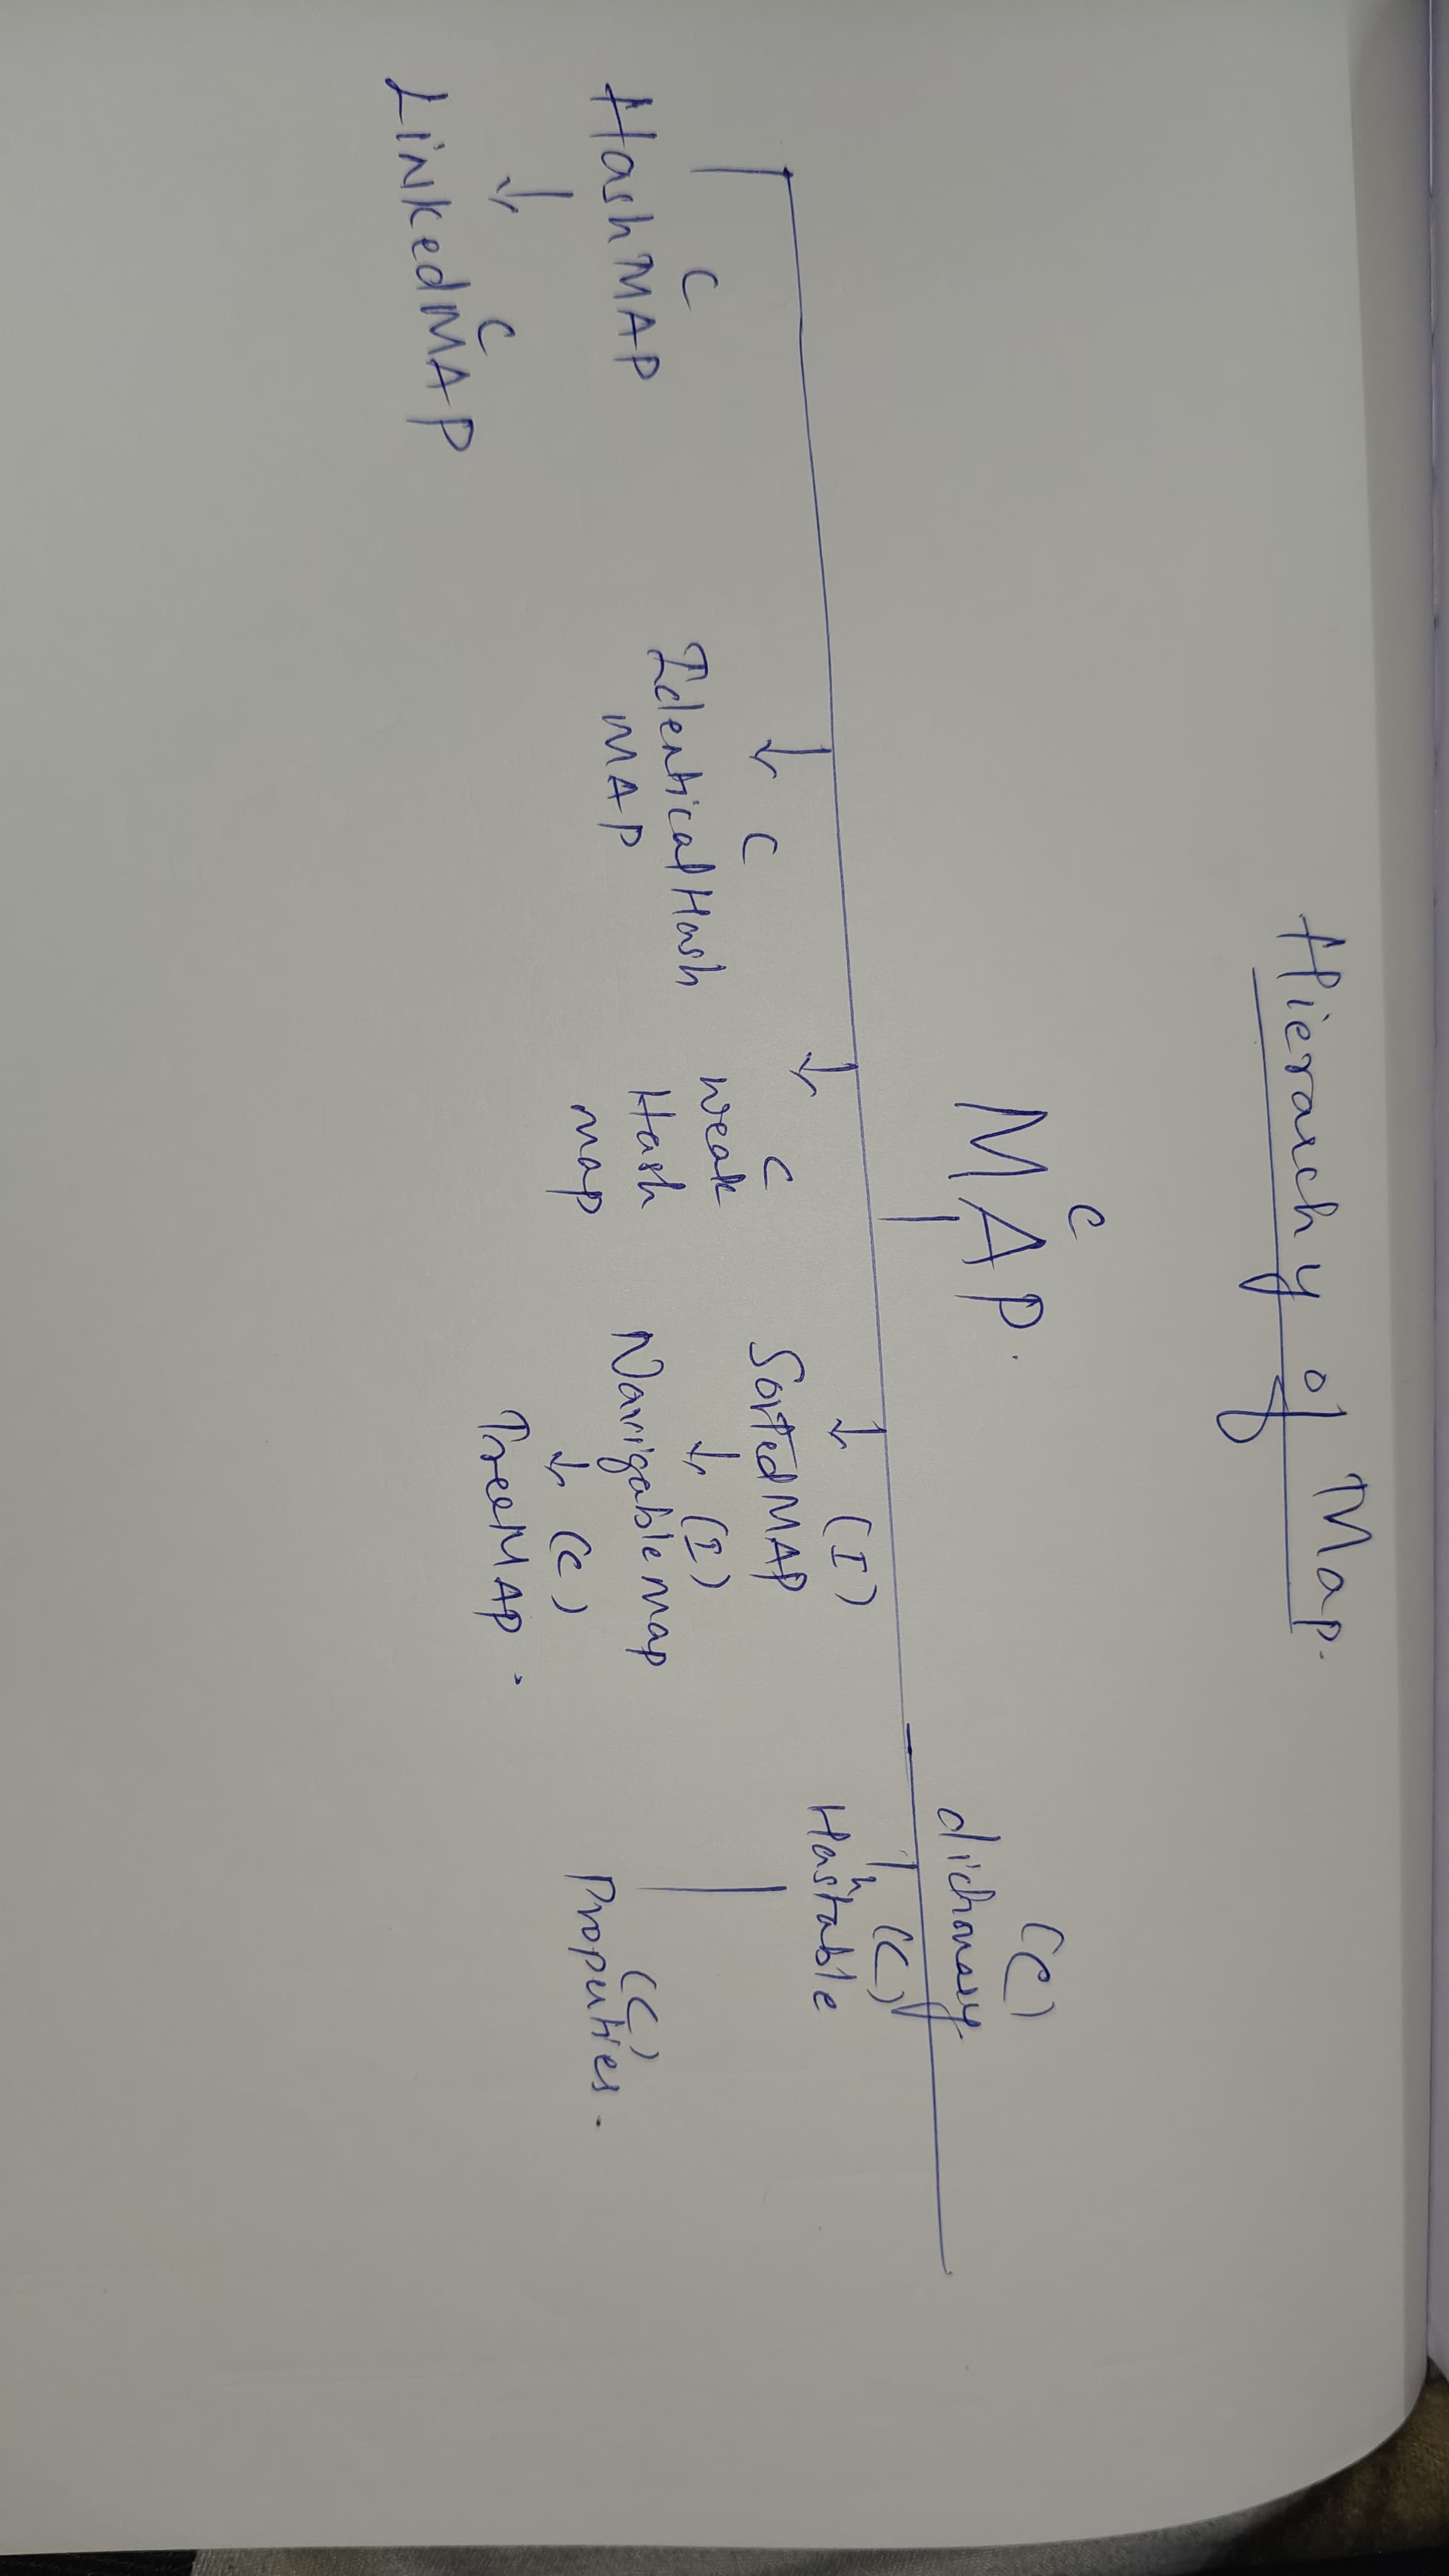 Hierarchy of Map.
C
MAP.
(C)
dictionary
C
HashMAP
C
LinkedMAP
C
IdenticalHash
MAP
C
weak
Hash
map
(I)
SortedMAP
(I)
Navigable map
(C)
TreeMAP.
(C)
Hashtable
(C)
Properties.